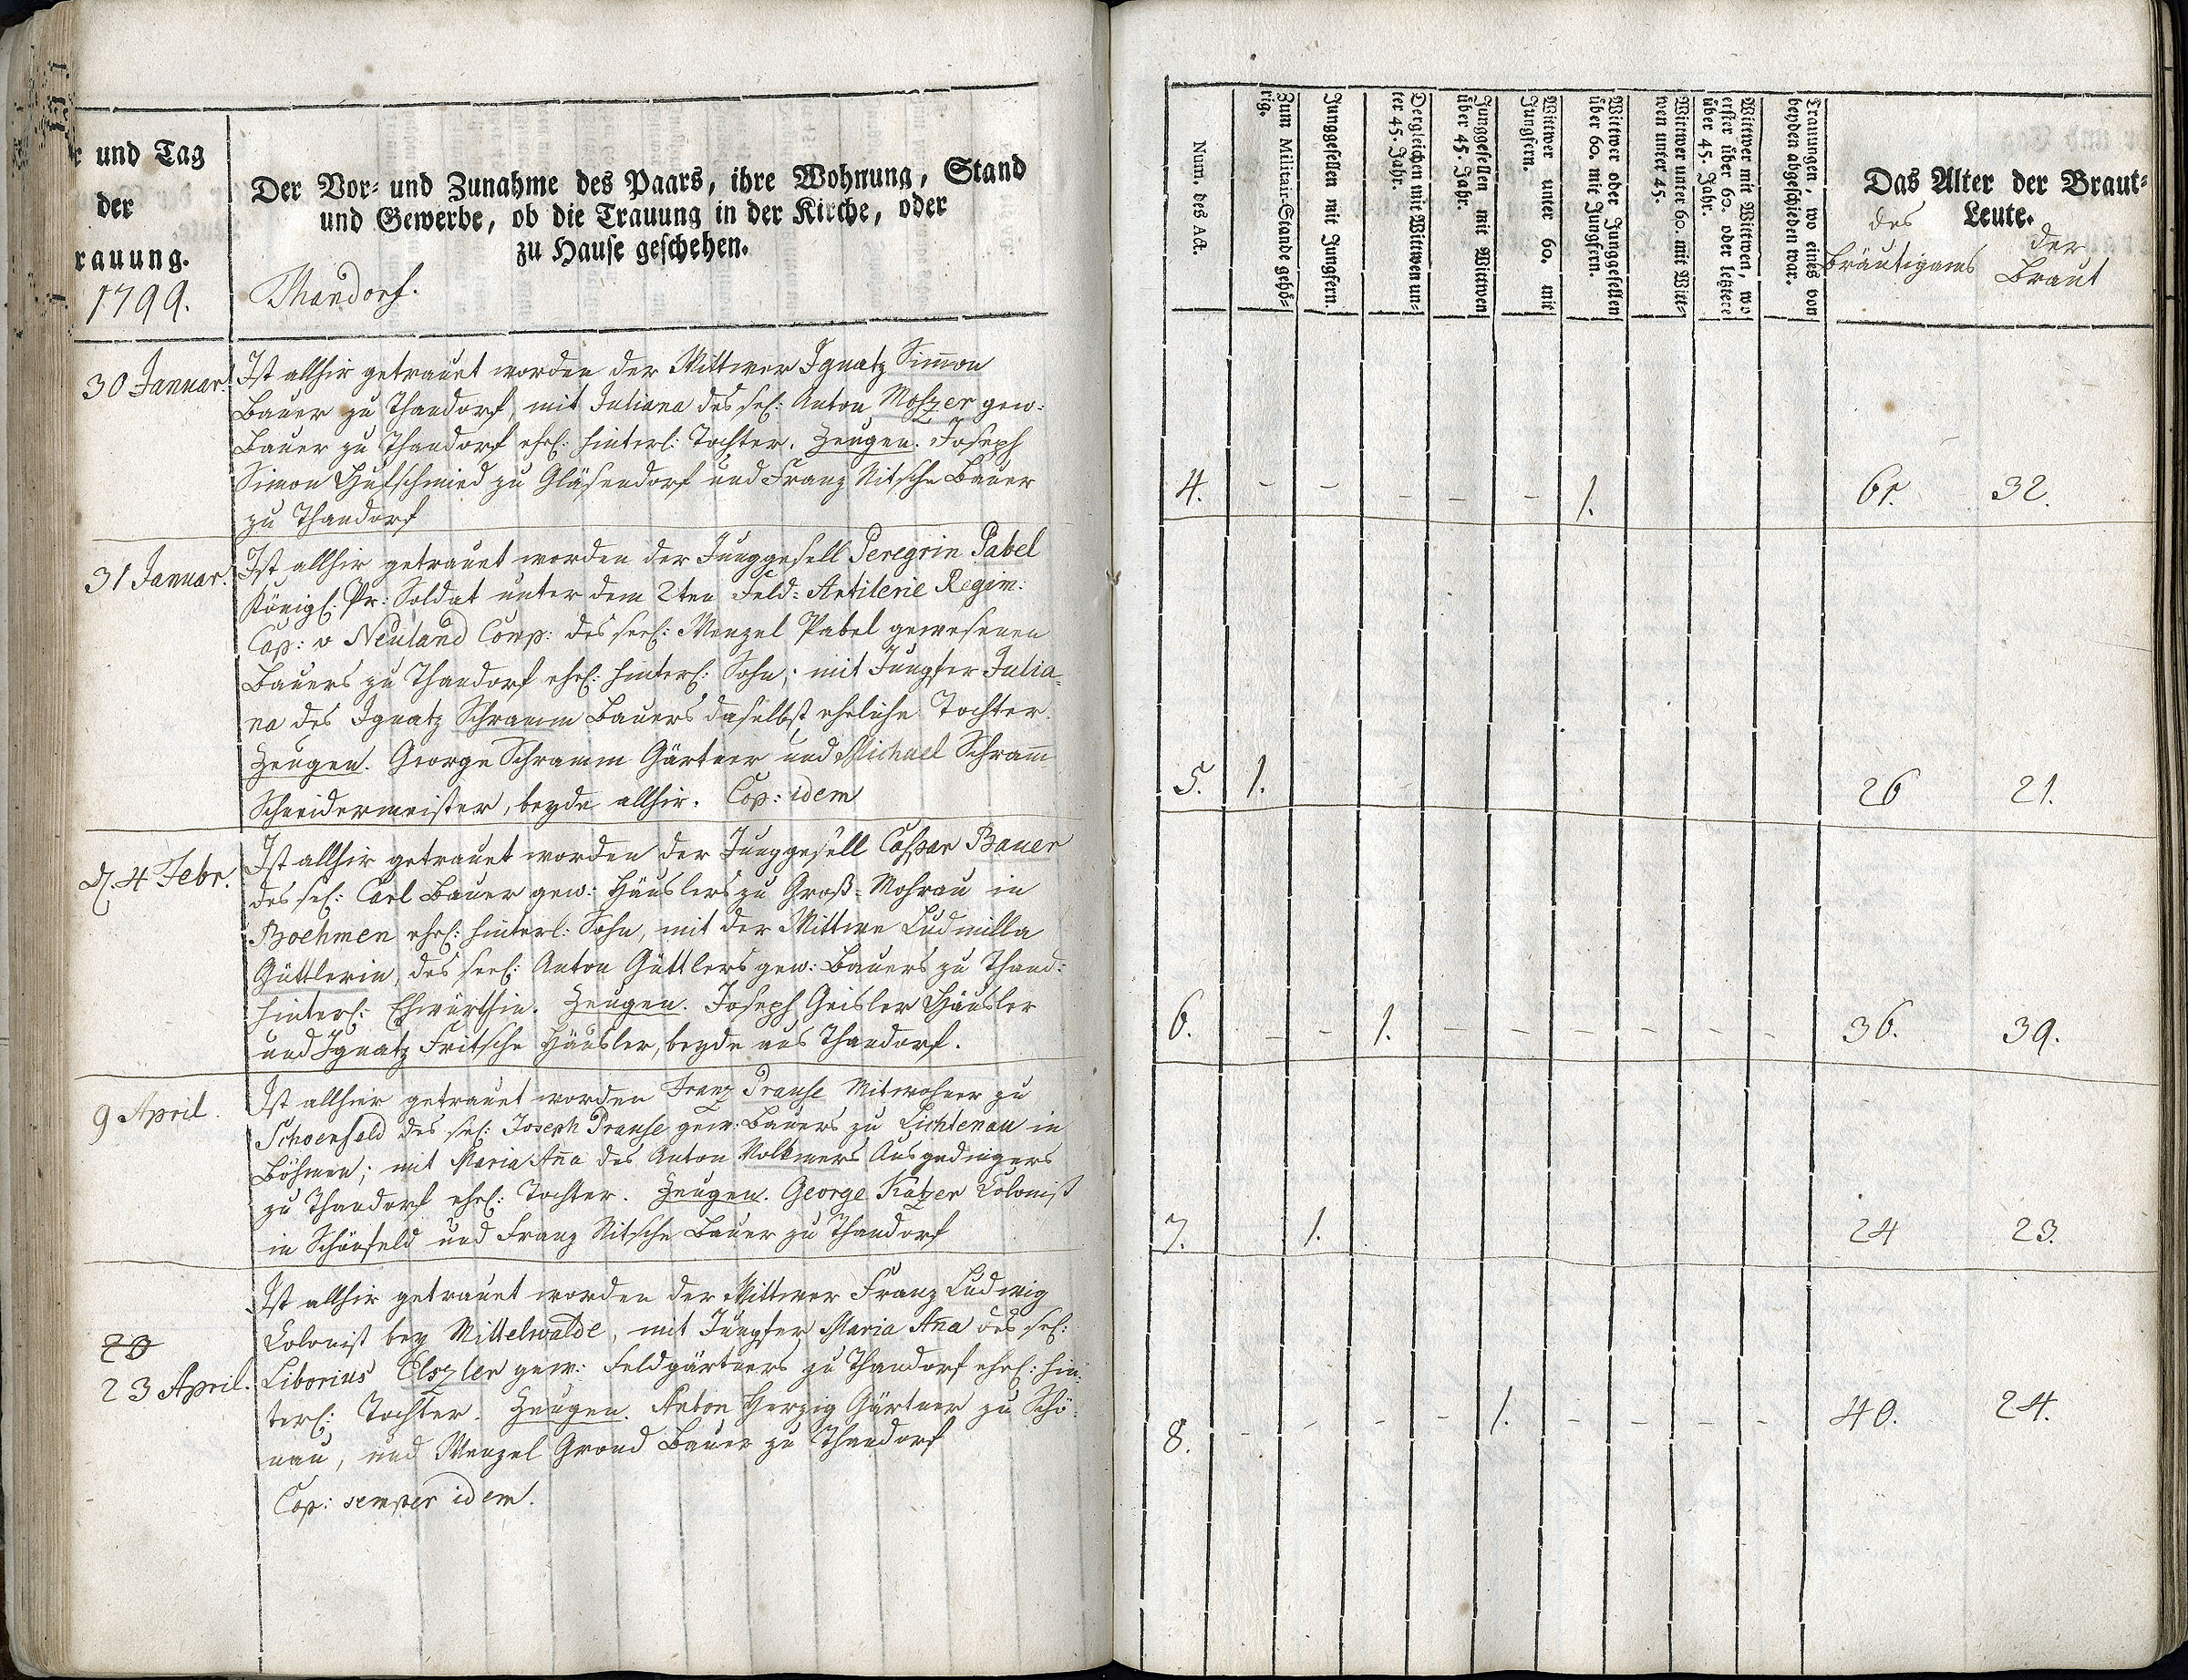 r und Tag
der
rauung.
1799.
Der Vor- und Zunahme des Paars, ihre Wohnung, Stand
und Gewerbe, ob die Trauung in der Kirche, oder
zu Hause geschehen.
Thandorf.
30 Januar.
Ist allhir getrauet worden der Wittwer Ignatz Sim̄on
Bauer zu Thandorf, mit Juliana des sel: Anton Moszer gew:
Bauer zu Thandorf ehel: hinterl: Tochter. Zeugen. Joseph
Simon Hufschmied zu Gläsendorf und Franz Nitsche Bauer
zu Thandorf
31 Januar.
Ist allhir getrauet worden der Junggesell Peregrin Pabel
Königl: Pr: Soldat unter dem 2ten Feld: Artilerie Regim:
Cap: v Neuland Comp: des seel: Wenzel Pabel gewesenen
Bauers zu Thandorf ehel: hinterl: Sohn; mit Jungfer Julia-
na des Ignatz Schramm Bauers daselbst eheliche Tochter.
Zeugen. George Schramm Gärtner und Michael Schram̄
Schneidermeister, beyde allhir. Cop: idem
d. 4 Febr.
Ist allhir getrauet worden der Junggesell Caspar Bauer
des sel: Carl Bauer gew: Häuslers zu Groß-Mohrau in
Boehmen ehel: hinterl: Sohn, mit der Wittwe Ludmilla
Güttlerin, des seel: Anton Güttlers gew: Bauers zu Thand:
hinterl: Ehwürthin. Zeugen. Joseph Geisler Häusler
und Ignatz Fritsche Häusler, beyde aus Thandorf.
9 April.
Ist allhier getrauet worden Franz Prause Mitwohner zu
Schoenfeld des sel: Joseph Prause gew: Bauers zu Lichtenau in
Böhmen; mit Maria An̄a des Anton Volkmers Ausgedingers
zu Thandorf ehel: Tochter. Zeugen. George Katzer Colonist
in Schönfeld und Franz Nitsche Bauer zu Thandorf
20
23 April.
Ist allhir getrauet worden der Wittwer Franz Ludwig
Colonist bey Mittelwalde, mit Jungfer Maria An̄a des sel:
Liborius Elszler gew: Feldgärtners zu Thandorf ehel: hin-
terl: Tochter. Zeugen. Anton Herzig Gärtner zu Schö-
nau, und Wenzel Grond Bauer zu Thandorf
Cop: semper idem.
Num. des Act.
Zum Militair-Stande gehö-
rig.
Junggesellen mit Jungfern.
Dergleichen mit Wittwen un-
ter 45. Jahr.
Junggesellen mit Wittwen
über 45. Jahr.
Wittwer unter 60. mit
Jungfern.
Wittwer oder Junggesellen
über 60. mit Jungfern.
Wittwer unter 60. mit Witt-
wen unter 45.
Wittwer mit Wittwen, wo
erster über 60. oder letztere
über 45. Jahr.
Trauungen, wo eines von
beyden abgeschieden war.
Das Alter der Braut-
Leute.
des
Bräutigams
der
Braut
4. - - - - - 1. 61. 32.
5. 1. 26 21.
6. - - 1. - - - - - - 36. 39.
7. 1. 24 23.
8. - - - - 1. - - - - 40. 24.